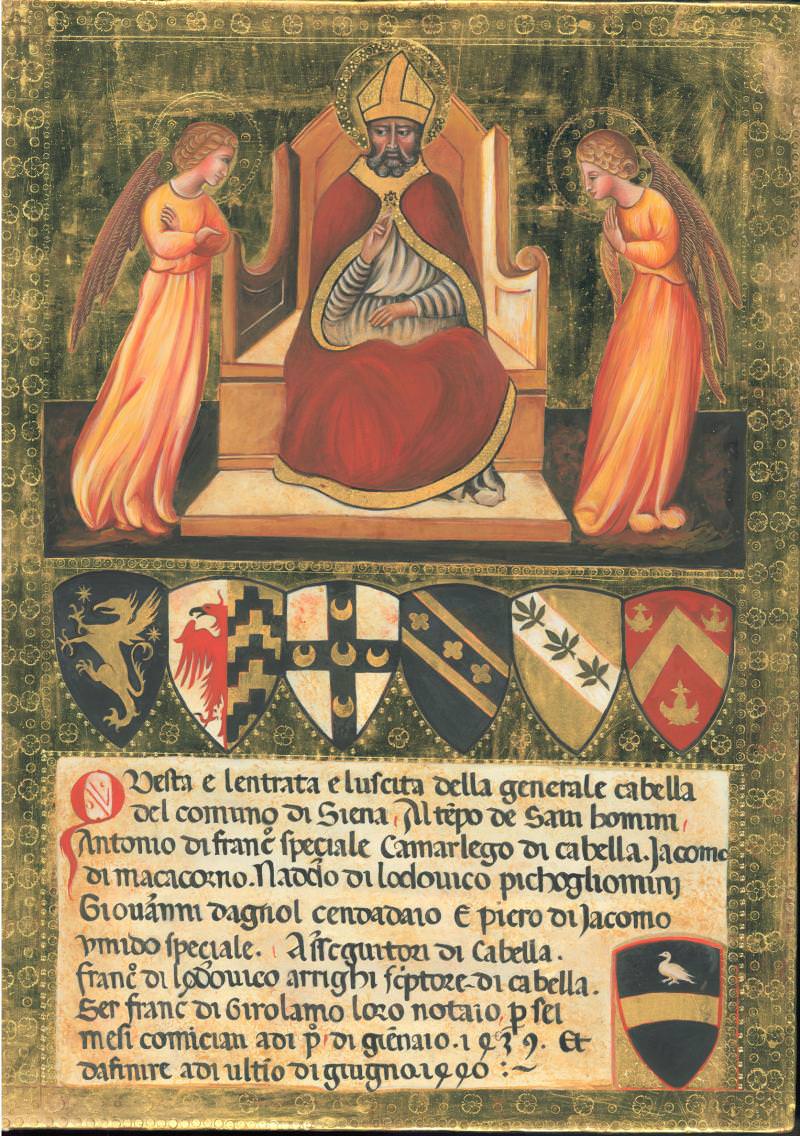 Questa e lentrata e luscita della generale cabella
del comuno di Siena Al tēpo de Savi homini
Antonio di franc̄ speciale Camarlego di cabella. Jacomo
di macacorno. Naddo di lodovico pichogliomini
Giovānni dagnol cendadaio E piero di Jacomo
umido speciale. Assēguitori di Cabella.
franc̄ di lodovico arrighi scptore di cabella.
Ser franc̄ di Girolamo loro notaio p sei
mesi comician adi pº di giēnaio. 1439. Et
dafinire adi ultio di giugno. 1440 :~